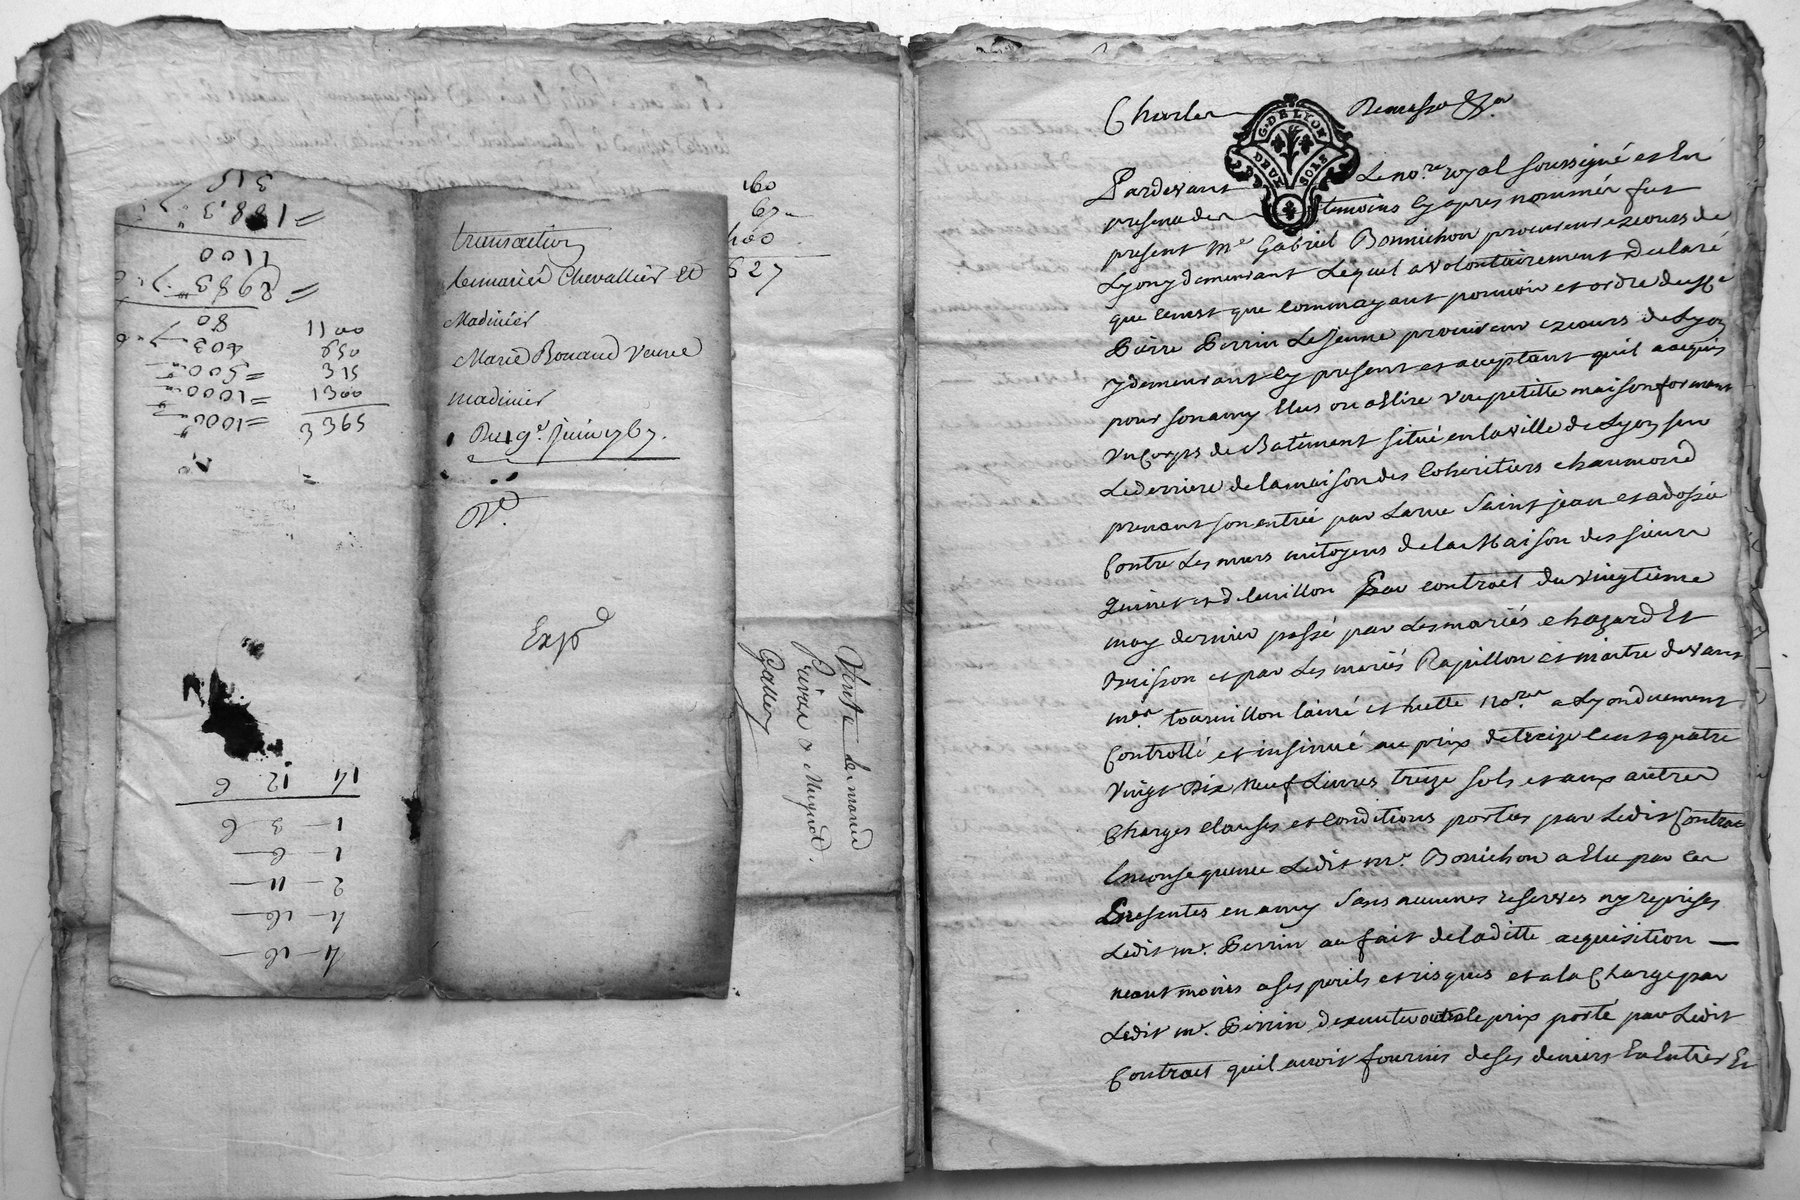 160
67
400
627
transaction
les mariés Chevallier et
Madinier
Marie Bonand veuve
madinier
Du 19e. Juin 1767.
Vd.
Expd
Vente les mariés
Prieur & Mugnot
315
1883
1100
2983
80
403
= 500
= 1000
= 1000
1100
650
315
1300
3365
14 12 6
1 — 3 6
1 — 6 —
2 — 11 —
4 — 16 —
4 — 16 —
Charles
G. DE LYON
DEUX SOLS
Pardevant Le no.re royal soussigné et En
presence des temoins cy apres nommés fut
present Me Gabriel Bonnichon procureur ez cours de
Lyon y demeurant Lequel a volontairement declaré
que comme ayant pouvoir et ordre de
Pierre Perrin Le Jeune procureur ez cours de Lyon
y demeurant cy present et acceptant quil a acquis
pour son amy Elus ou a Elire une petitte maison formant
un Corps de Batiment situé en la ville de Lyon sur
Le derriere de la maison des Coheritiers chaumond
prenant son entrée par La rue Saint jean et adossée
Contre Les murs mitoyens de la Maison des sieurs
et Par contract du vingtieme
may dernier passé par Les mariés chazard Et
Brisson et par Les mariés Rapillon et maitre devant
mes. tournillon l'ainé et huette no.res a Lyon duement
Controllé et insinué au prix de treize Cent quatre
vingt Dix neuf Livres treize sols et aux autres
Charges clauses et Conditions portées par Ledit Contrac
En consequence Ledit mr. Bonichon a Elu par Les
Presentes en amy Sans aucunes reserves ny reprises
Ledit mr. Perrin au fait de laditte acquisition —
neant moins a ses perils et risques et a la Charge par
Ledit mr. Perrin d'executer le prix porté par Ledit
Contract quil avoit fournis de ses deniers En Entier Et